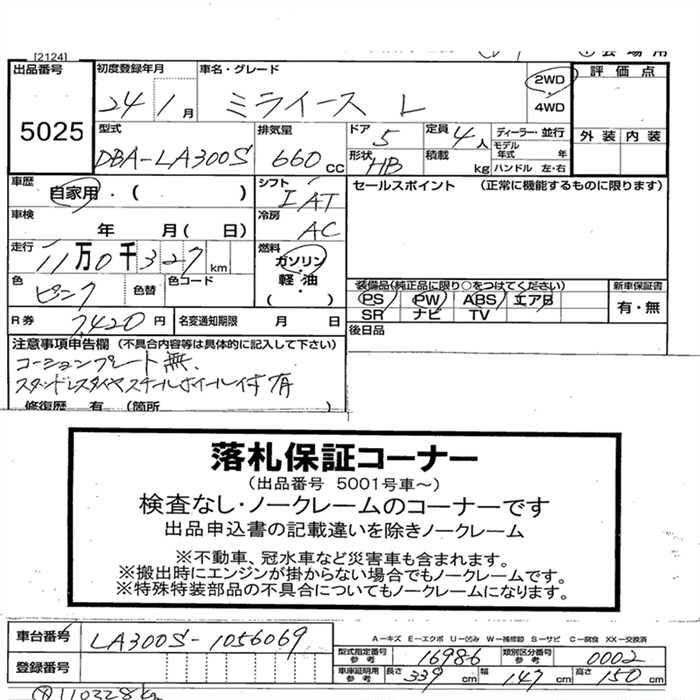 [2124]
出品番号 初度登録年月 車名・グレード 2WD 評価点
5025 24年1月 ミライース L 4WD
外装 内装
型式 排気量 ドア 5 定員 4人 ディーラー・並行
DBA-LA300S 660cc 形状 HB 積載 kg モデル年式 年
ハンドル 左・右
車歴 自家用・( ) シフト IAT セールスポイント (正常に機能するものに限ります)
車検 年 月( 日) 冷房 AC
走行 11万0千327km 燃料 ガソリン・軽油・( )
色 ピンク 色替 色コード 装備品(純正品に限り○をつけてください) 新車保証書
PS PW ABS エアB 有・無
R券 7,420円 名変通知期限 月 日 SR ナビ TV
注意事項申告欄(不具合内容等は具体的に記入して下さい) 後日品
コーションプレート無
スタッドレスタイヤスチールホイール付有
修復歴 有 (箇所
落札保証コーナー
(出品番号 5001号車~)
検査なし・ノークレームのコーナーです
出品申込書の記載違いを除きノークレーム
※不動車、冠水車など災害車も含まれます。
※搬出時にエンジンが掛からない場合でもノークレームです。
※特殊特装部品の不具合についてもノークレームになります。
車台番号 LA300S-1056069 A-キズ E-エクボ U-凹み W-補修跡 S-サビ C-腐食 XX-交換済
型式指定番号 参考 16986 類別区分番号 参考 0002
登録番号 車庫証明用 参考 長さ 339cm 幅 147cm 高さ 150cm
110328km